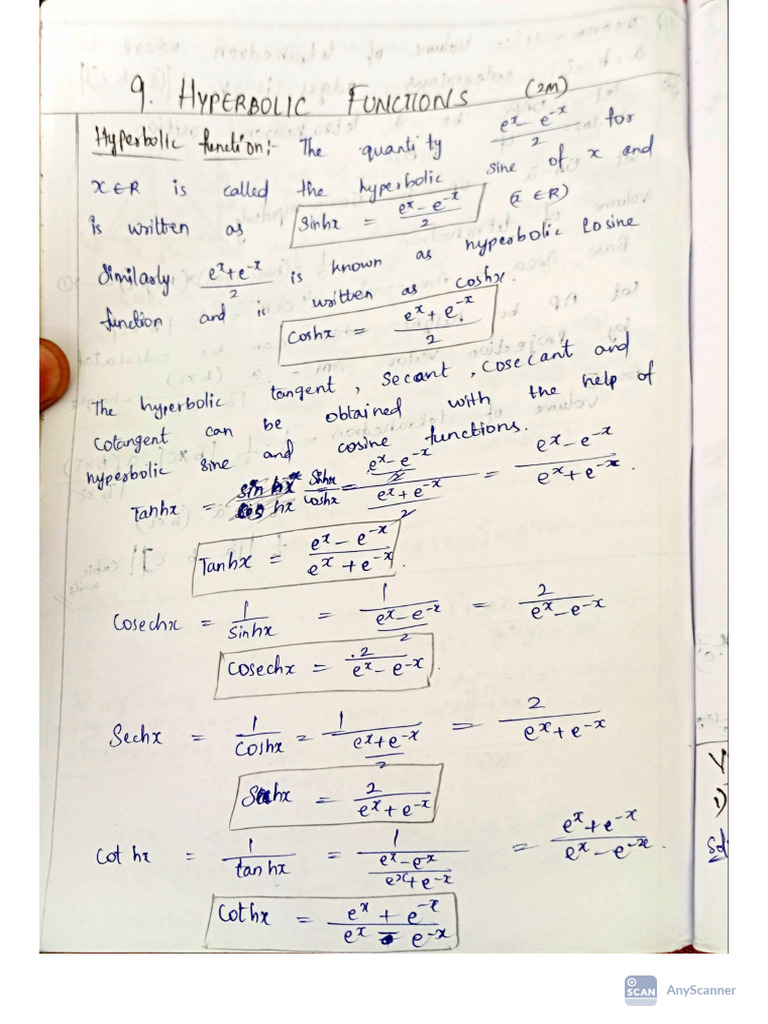 9. HYPERBOLIC FUNCTIONS (2M)
Hyperbolic function:- The quantity (e^x - e^-x)/2 for
x∈R is called the hyperbolic sine of x and
is written as Sinhx = (e^x - e^-x)/2 (x ∈R)
Similarly (e^x + e^-x)/2 is known as hyperbolic Cosine
function and is written as coshx.
Coshx = (e^x + e^-x)/2
The hyperbolic tangent, Secant, cosecant and
cotangent can be obtained with the help of
hyperbolic sine and cosine functions.
Tanhx = Sinhx/coshx = ((e^x - e^-x)/2)/((e^x + e^-x)/2) = (e^x - e^-x)/(e^x + e^-x).
Tanhx = (e^x - e^-x)/(e^x + e^-x).
Cosechx = 1/sinhx = 1/((e^x - e^-x)/2) = 2/(e^x - e^-x)
Cosechx = 2/(e^x - e^-x).
Sechx = 1/Coshx = 1/((e^x + e^-x)/2) = 2/(e^x + e^-x)
Sechx = 2/(e^x + e^-x)
Cot hx = 1/tanhx = 1/((e^x - e^-x)/(e^x + e^-x)) = (e^x + e^-x)/(e^x - e^-x).
Cothx = (e^x + e^-x)/(e^x - e^-x)
1)
Sol
SCAN AnyScanner